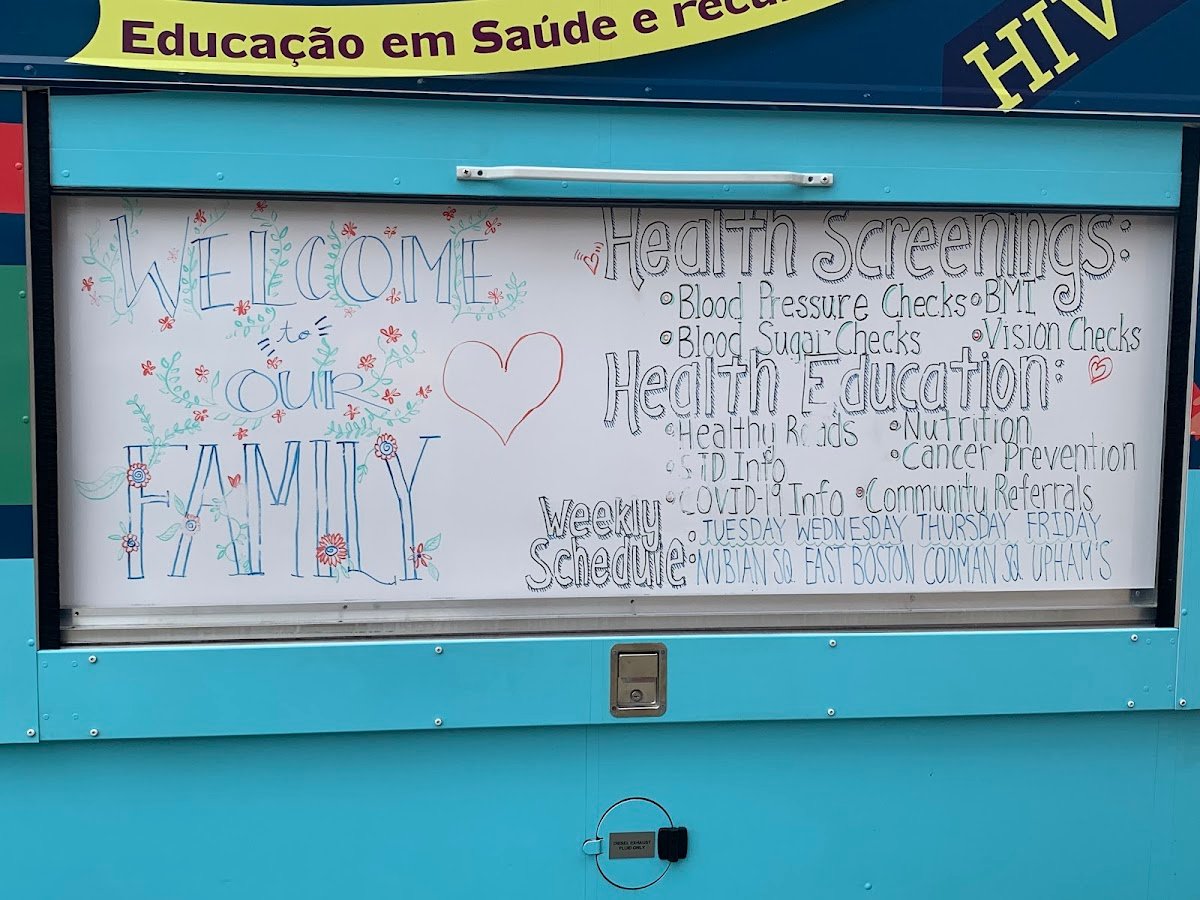 Educação em Saúde e
HIV
WELCOME
to
OUR
FAMILY
Health Screenings:
Blood Pressure Checks
BMI
Blood Sugar Checks
Vision Checks
Health Education:
Healthy
Nutrition
Info
Cancer Prevention
COVID-19 Info
Community Referrals
Weekly
Schedule:
TUESDAY WEDNESDAY THURSDAY FRIDAY
NUBIAN SQ. EAST BOSTON CODMAN SQ. UPHAM'S
DIESEL EXHAUST
FLUID ONLY